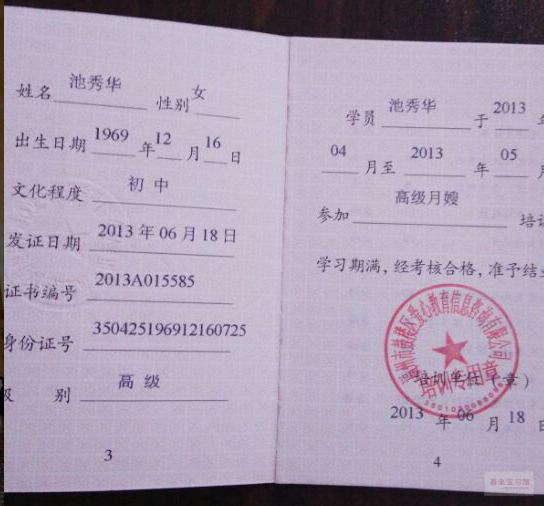 姓名 池秀华 性别 女
出生日期 1969 年 12 月 16 日
文化程度 初中
发证日期 2013年06月18日
证书编号 2013A015585
身份证号 350425196912160725
别 高级
3
学员 池秀华 于 2013
04 月至 2013 年 05 月
参加 高级月嫂 培训
学习期满，经考核合格，准予结业
福州市鼓楼区爱心教育信息咨询有限公司
培训专用章
培训单位（章）
2013 年 06 月 18
4